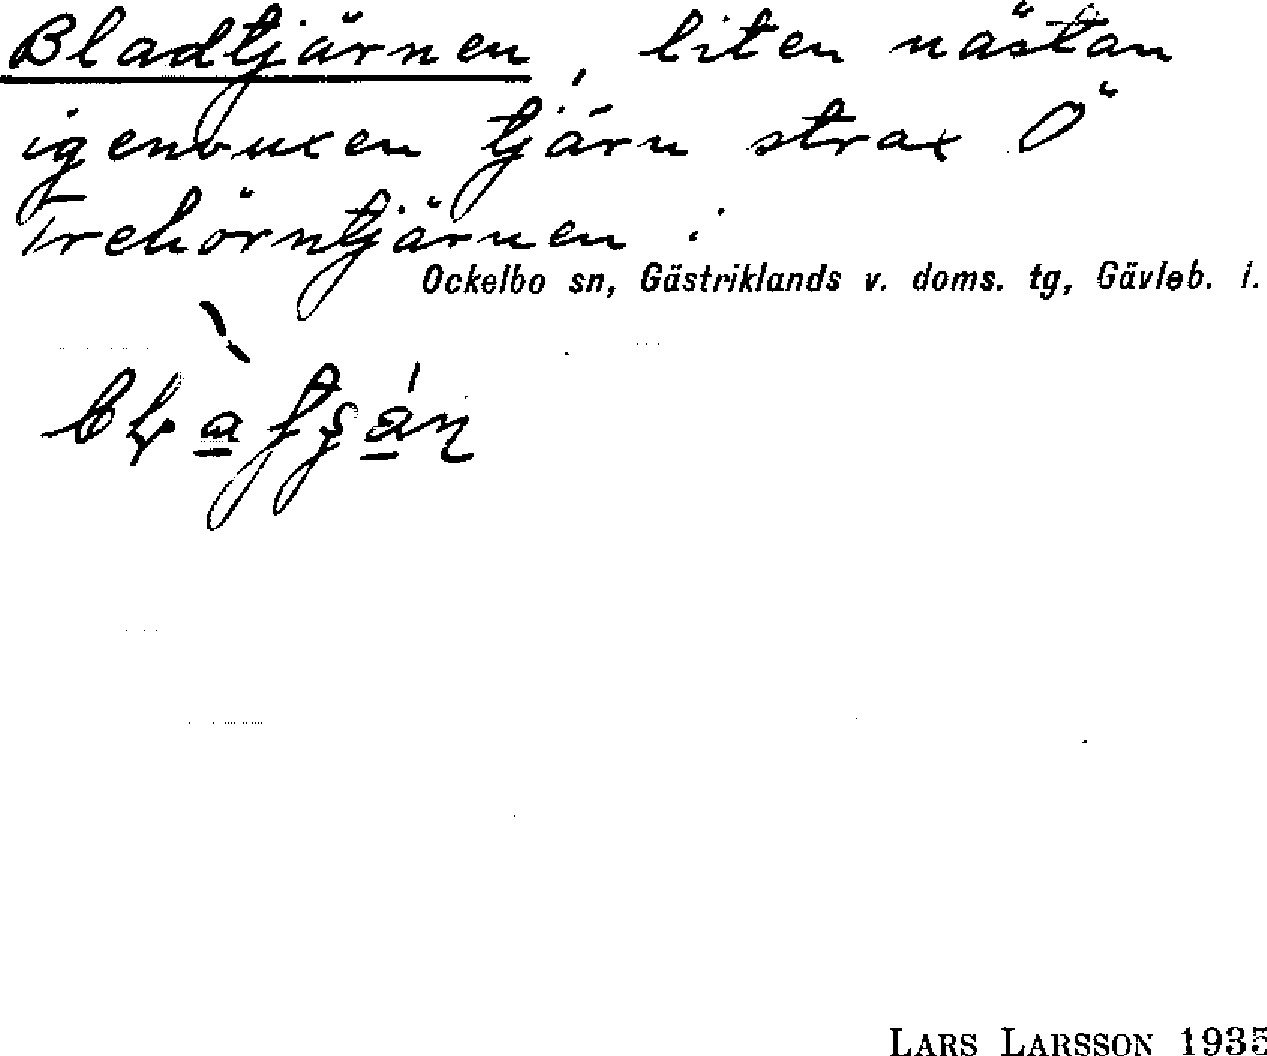 Bladtjärnen, liten nästan
igenvuxen tjärn strax Ö
Trehörntjärnen i
Ockelbo sn, Gästriklands v. doms. tg, Gävleb. l.
LARS LARSSON 1935